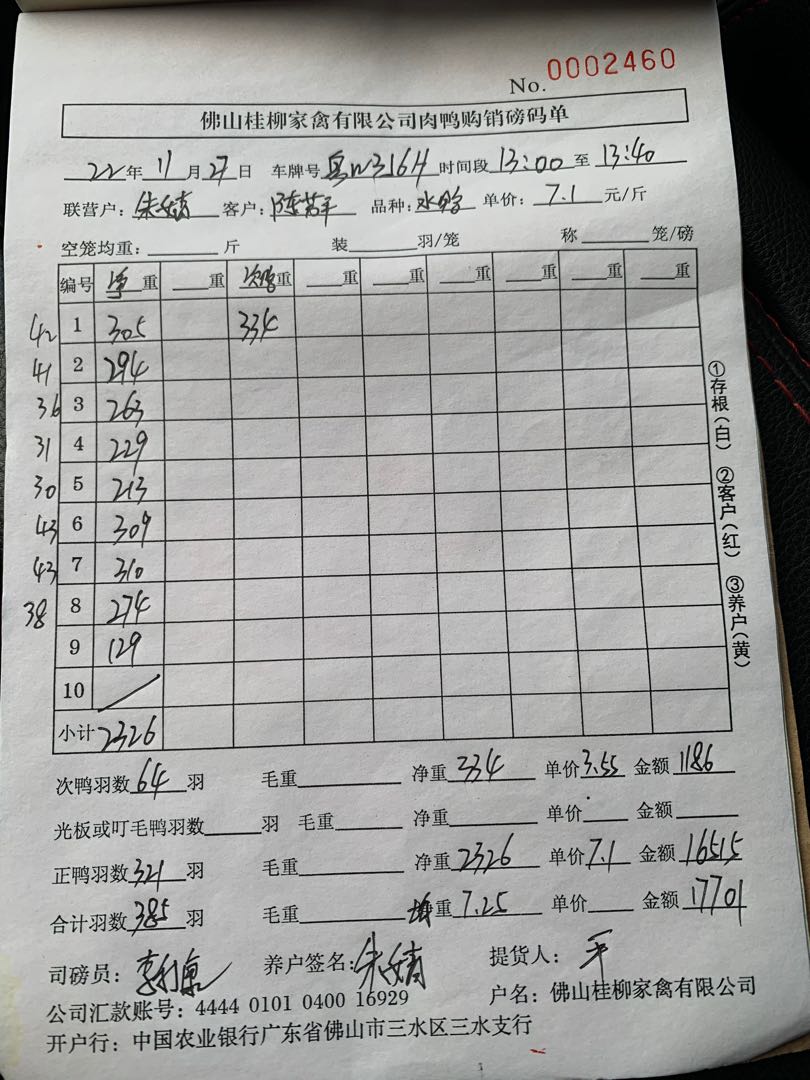 No. 0002460
佛山桂柳家禽有限公司肉鸭购销磅码单
22年 11月 27日 车牌号 粤W3164 时间段 13:00 至 13:40
联营户: 朱婧 客户: 陈 平 品种: 水 单价: 7.1 元/斤
空笼均重: 斤 装 羽/笼 称 笼/磅
编号 净重 重 次鸭重 重 重 重 重 重 重
42 1 305 334
41 2 294
36 3 263
31 4 229
30 5 213
43 6 309
43 7 310
38 8 274
9 129
10 /
小计 2326
①存根(白) ②客户(红) ③养户(黄)
次鸭羽数 64 羽 毛重 净重 334 单价 3.55 金额 1186
光板或叮毛鸭羽数 羽 毛重 净重 单价 金额
正鸭羽数 321 羽 毛重 净重 2326 单价 7.1 金额 16515
合计羽数 385 羽 毛重 均重 7.25 单价 金额 17701
司磅员: 李 养户签名: 朱婧 提货人: 平
公司汇款账号: 4444 0101 0400 16929 户名: 佛山桂柳家禽有限公司
开户行: 中国农业银行广东省佛山市三水区三水支行